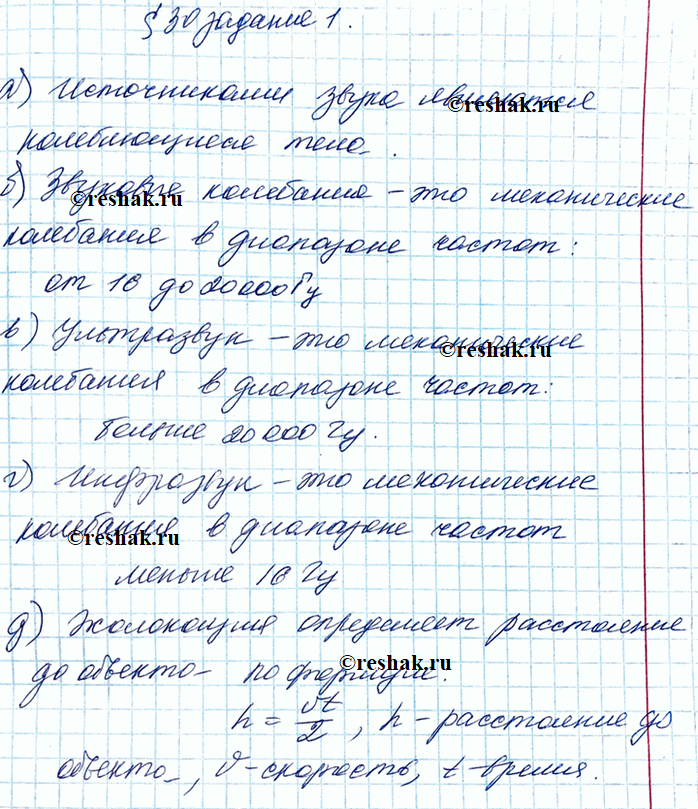 § 30 задание 1.
а) Источниками звука являются
колеблющиеся тела.
б) Звуковые колебания – это механические
колебания в диапазоне частот:
от 16 до 20000 Гц
в) Ультразвук – это механические
колебания в диапазоне частот:
больше 20000 Гц.
г) Инфразвук – это механические
колебания в диапазоне частот
меньше 16 Гц
д) Эхолокация определяет расстояние
до объекта по формуле:
h = vt/2, h – расстояние до
объекта, v – скорость, t – время.
©reshak.ru
©reshak.ru
©reshak.ru
©reshak.ru
©reshak.ru